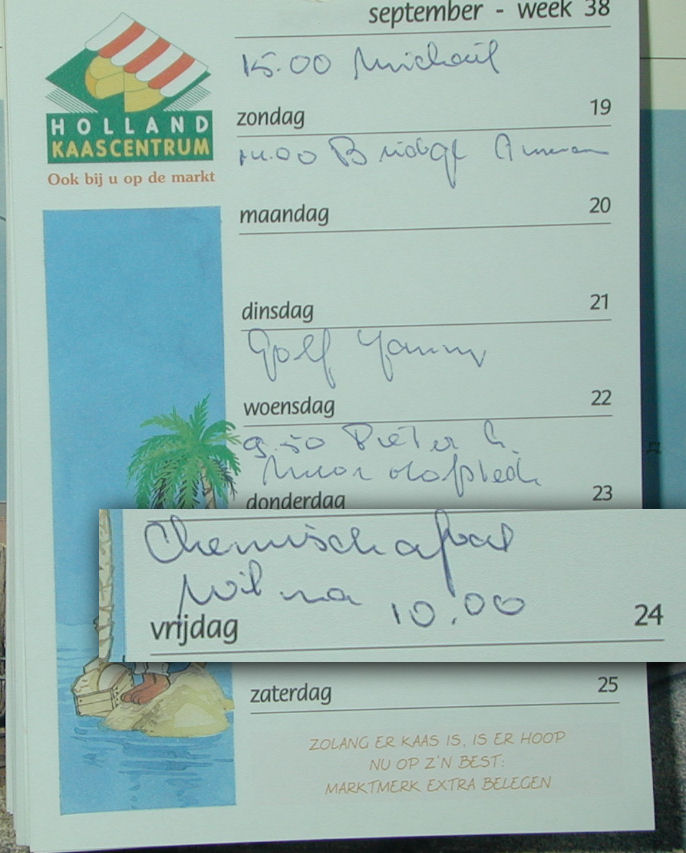 september - week 38
15.00 Michaël
HOLLAND
KAASCENTRUM
Ook bij u op de markt
zondag 19
14.00 Bridge
maandag 20
dinsdag 21
Golf
woensdag 22
9.50 Pieter
donderdag 23
Chemisch afval
Wilma 10.00
vrijdag 24
zaterdag 25
ZOLANG ER KAAS IS, IS ER HOOP
NU OP Z'N BEST:
MARKTMERK EXTRA BELEGEN